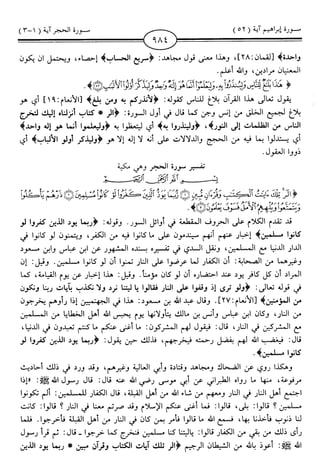 سورة إبراهيم آية (٥٢)
٩٨٤
سورة الحجر آية (١-٣)
واحدة﴾ [لقمان: ٢٨]، وهذا معنى قول مجاهد: ﴿سريع الحساب﴾ إحصاء، ويحتمل أن يكون
المعنيان مرادين، والله أعلم.
﴿ هَٰذَا بَلَاغٌ لِّلنَّاسِ وَلِيُنذَرُوا بِهِ وَلِيَعْلَمُوا أَنَّمَا هُوَ إِلَٰهٌ وَاحِدٌ وَلِيَذَّكَّرَ أُولُو الْأَلْبَابِ ﴾.
يقول تعالى هذا القرآن بلاغ للناس كقوله: ﴿لأنذركم به ومن بلغ﴾ [الأنعام: ١٩] أي هو
بلاغ لجميع الخلق من إنس وجن كما قال في أول السورة: ﴿الر * كتاب أنزلناه إليك لتخرج
الناس من الظلمات إلى النور﴾، ﴿ولينذروا به﴾ أي ليتعظوا به ﴿وليعلموا أنما هو إله واحد﴾
أي يستدلوا بما فيه من الحجج والدلالات على أنه لا إله إلا هو ﴿وليذكر أولو الألباب﴾ أي
ذووا العقول.
تفسير سورة الحجر وهي مكية
بِسْمِ اللَّهِ الرَّحْمَٰنِ الرَّحِيمِ
﴿الٓر تِلْكَ آيَاتُ الْكِتَابِ وَقُرْآنٍ مُّبِينٍ ۝ رُّبَمَا يَوَدُّ الَّذِينَ كَفَرُوا لَوْ كَانُوا مُسْلِمِينَ ۝ ذَرْهُمْ يَأْكُلُوا
وَيَتَمَتَّعُوا وَيُلْهِهِمُ الْأَمَلُ فَسَوْفَ يَعْلَمُونَ ۝﴾.
قد تقدم الكلام على الحروف المقطعة في أوائل السور. وقوله: ﴿ربما يود الذين كفروا لو
كانوا مسلمين﴾ إخبار عنهم أنهم سيندمون على ما كانوا فيه من الكفر، ويتمنون لو كانوا في
الدار الدنيا مع المسلمين، ونقل السدي في تفسيره بسنده المشهور عن ابن عباس وابن مسعود
وغيرهما من الصحابة: أن الكفار لما عرضوا على النار تمنوا أن لو كانوا مسلمين. وقيل: إن
المراد أن كل كافر يود عند احتضاره أن لو كان مؤمناً. وقيل: هذا إخبار عن يوم القيامة، كما
في قوله تعالى: ﴿ولو ترى إذ وقفوا على النار فقالوا يا ليتنا نرد ولا نكذب بآيات ربنا ونكون
من المؤمنين﴾ [الأنعام: ٢٧]. وقال عبد الله بن مسعود: هذا في الجهنميين إذا رأوهم يخرجون
من النار، وكان ابن عباس وأنس بن مالك يتأولانها يوم يحبس الله أهل الخطايا من المسلمين
مع المشركين في النار، قال: فيقول لهم المشركون: ما أغنى عنكم ما كنتم تعبدون في الدنيا،
قال: فيغضب الله لهم بفضل رحمته فيخرجهم، فذلك حين يقول: ﴿ربما يود الذين كفروا لو
كانوا مسلمين﴾.
وهكذا روي عن الضحاك ومجاهد وقتادة وأبي العالية وغيرهم، وقد ورد في ذلك أحاديث
مرفوعة، منها ما رواه الطبراني عن أبي موسى رضي الله عنه قال: قال رسول الله ﷺ: «إذا
اجتمع أهل النار في النار ومعهم من شاء الله من أهل القبلة، قال الكفار للمسلمين: ألم تكونوا
مسلمين؟ قالوا: بلى، قالوا: فما أغنى عنكم الإسلام وقد صرتم معنا في النار؟ قالوا: كانت
لنا ذنوب فأخذنا بها، فسمع الله ما قالوا فأمر بمن كان في النار من أهل القبلة فأخرجوا. فلما
رأى ذلك من بقي من الكفار قالوا: يا ليتنا كنا مسلمين فنخرج كما خرجوا ـ قال: ثم قرأ رسول
الله ﷺ: أعوذ بالله من الشيطان الرجيم ﴿الر تلك آيات الكتاب وقرآن مبين * ربما يود الذين